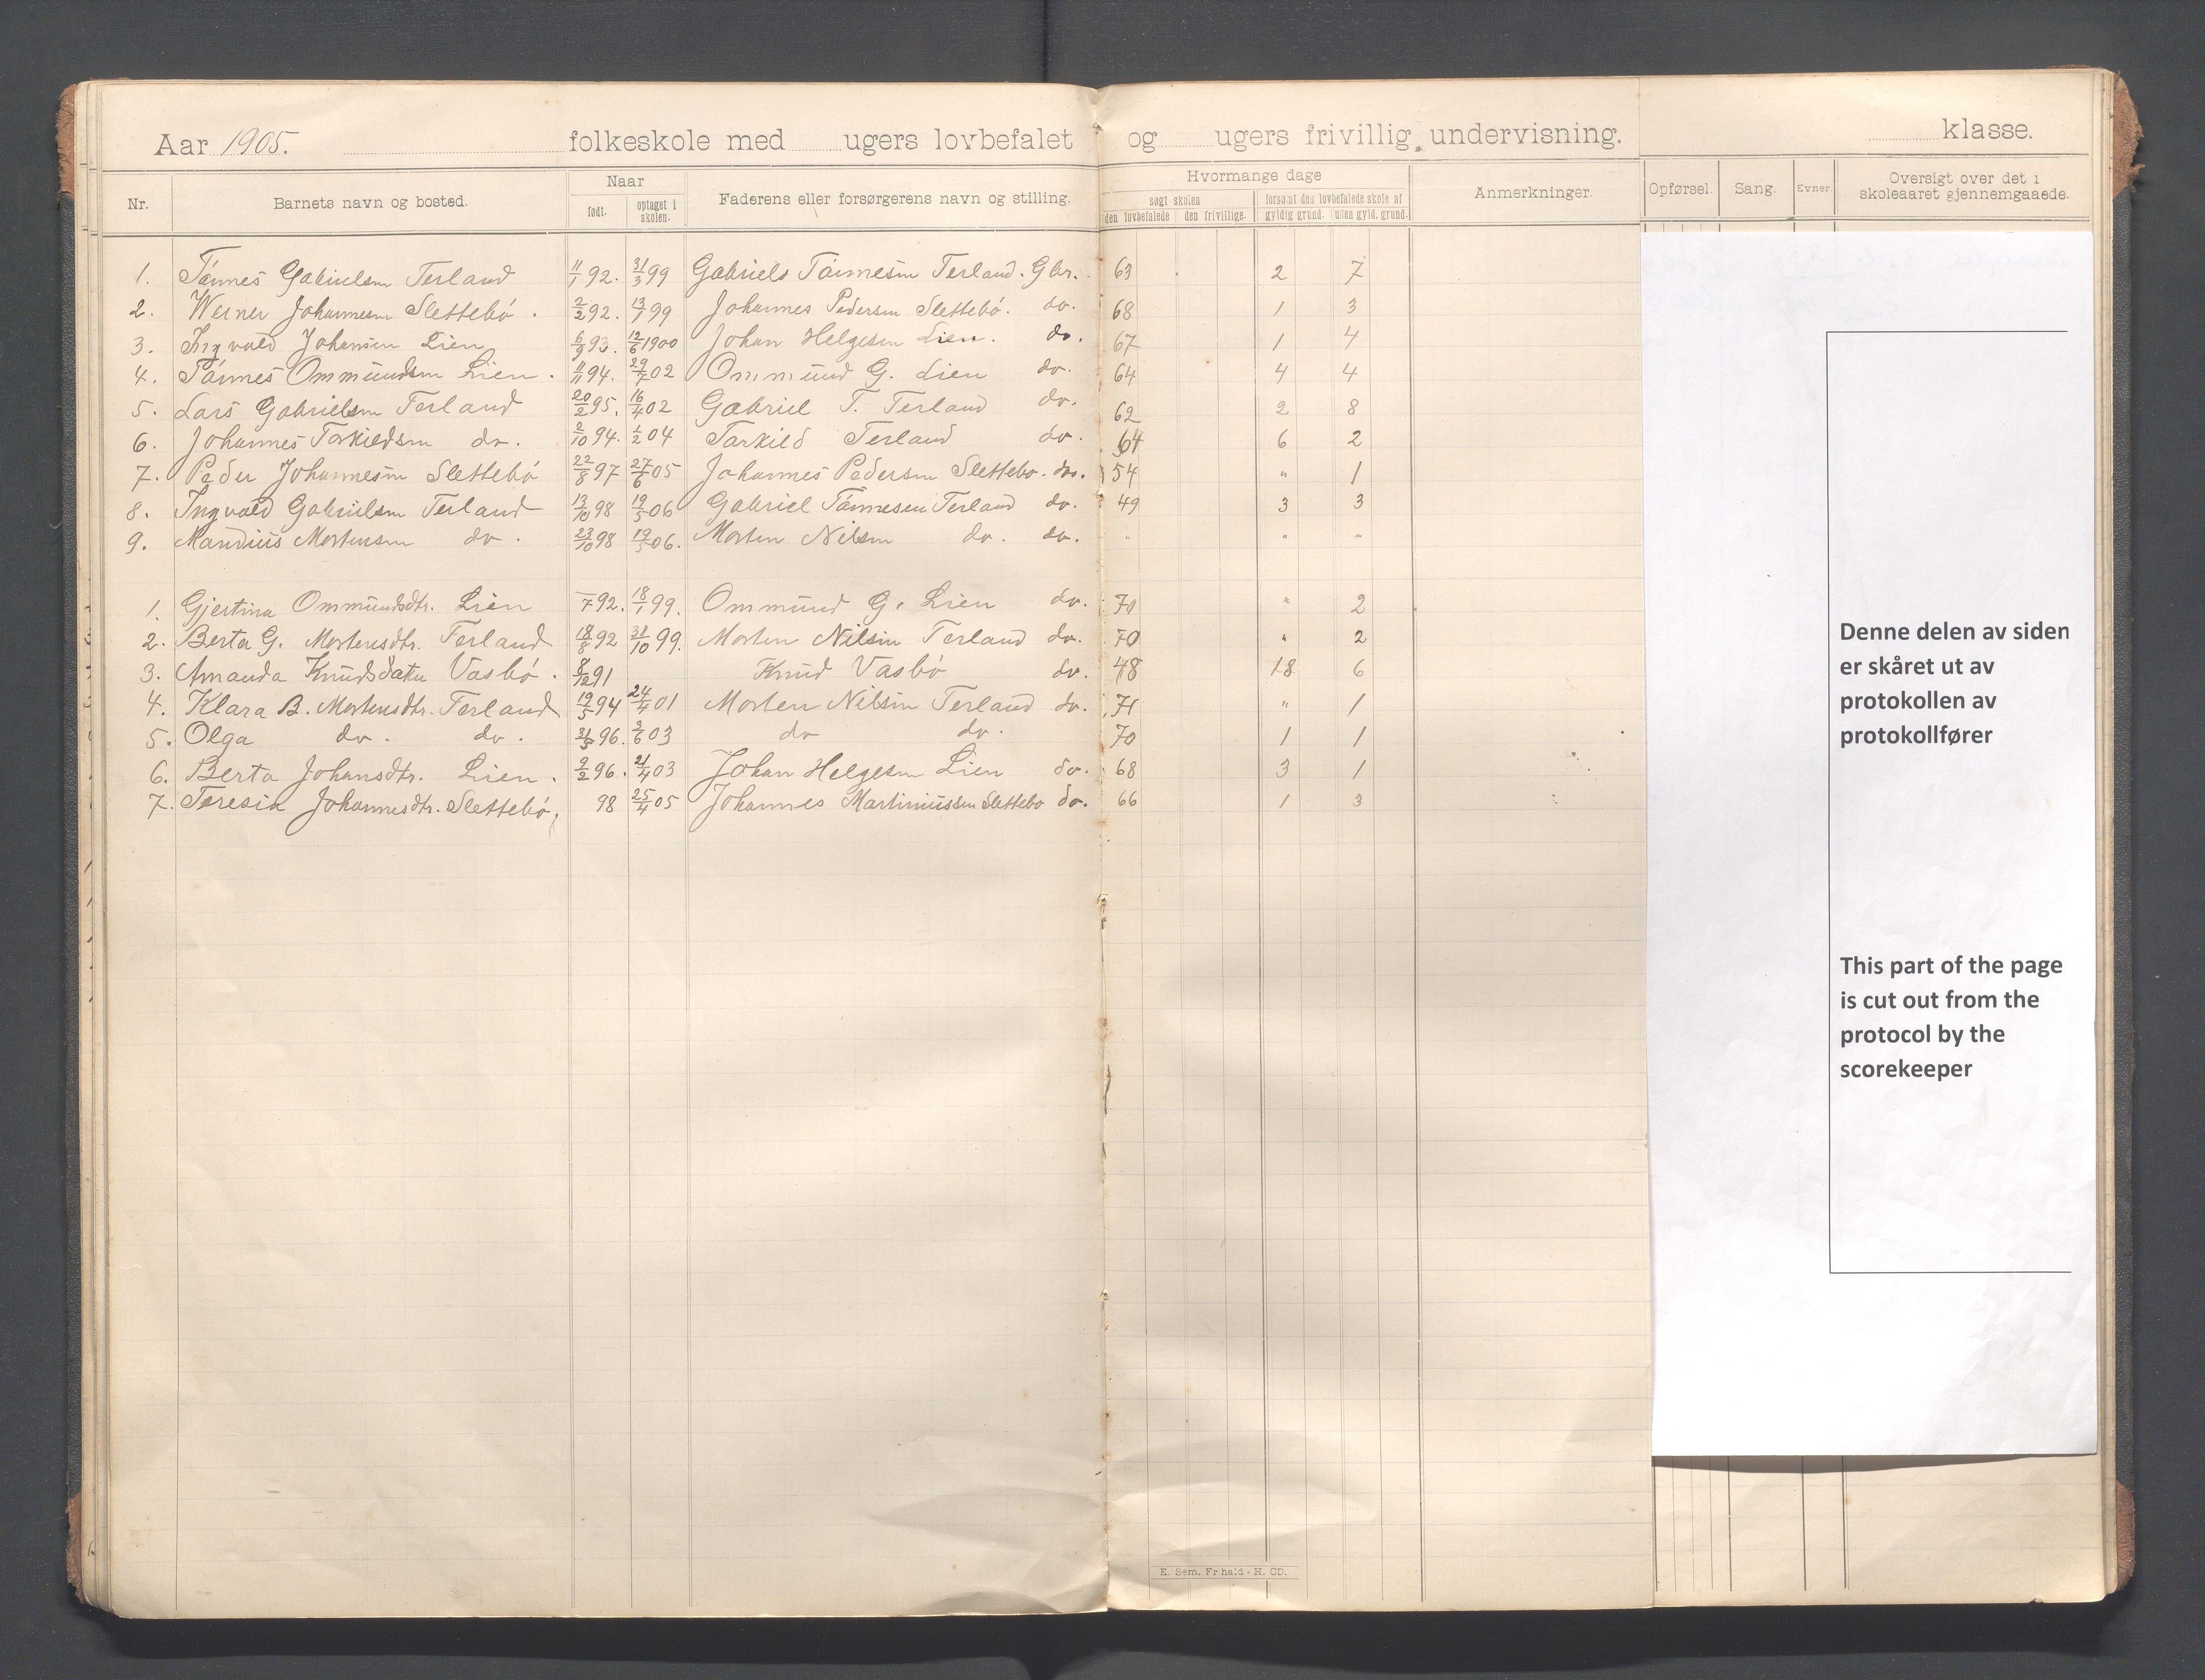 Aar 1905. folkeskole med ugers lovbefalet og ugers frivillig undervisning. klasse.
Nr. Barnets navn og bosted. Naar født. optaget i skolen. Faderens eller forsørgerens navn og stilling. Hvormange dage søgt skolen den lovbefalede den frivillige. forsømt den lovbefalede skole af gyldig grund. uden gyld. grund. Anmerkninger. Opførsel. Sang. Evner. Oversigt over det i skoleaaret gjennemgaaede.
1. Tönnes Gabrielsen Terland 11/1 92. 31/3 99 Gabriels Tönnesen Terland. Gbr. 63 2 7
2. Werner Johannesen Slettebö. 2/2 92. 13/1 99 Johannes Pedersen Slettebö. do. 68 1 3
3. Ingvald Johansen Lien 6/9 93. 12/6 1900 Johan Helgesen Lien. do. 67 1 4
4. Tönnes Ommundsen Lien. 11/11 94. 29/7 02 Ommund G. Lien do. 64 4 4
5. Lars Gabrielsen Terland 20/2 95. 16/4 02 Gabriel T. Terland do. 62 2 8
6. Johannes Torkildsen do. 2/10 94. 1/2 04 Tarkild Terland do. 64 6 2
7. Peder Johannesen Slettebö 22/8 97 27/6 05 Johannes Pedersen Slettebo. do. 54 " 1
8. Ingvald Gabrielsen Terland 13/10 98 19/5 06 Gabriel Tönnesen Terland do. 49 3 3
9. Mandius Mortensen do. 23/10 98 19/5 06. Morten Nilsen do. do. " " "
1. Gjertina Ommundsdtr. Lien 7 92. 18/1 99. Ommund G. Lien do. 70 " 2
2. Berta G. Mortensdtr. Terland 18/8 92 31/10 99. Morten Nilsen Terland do. 70 " 2
3. Amanda Knudsdatter Vasbö. 8/12 91 Knud Vasbö do. 48 18 6
4. Klara B. Mortensdtr. Terland 19/5 94 24/4 01 Morten Nilsen Terland do. 71 " 1
5. Olga do. do. 96. 3/6 03 do do. 70 1 1
6. Berta Johansdtr. Lien. 2/2 96. 21/4 03 Johan Helgesen Lien do. 68 3 1
7. Teresia Johannesdtr. Slettebö, 98 25/4 05 Johannes Martiniussen Slettebo do. 66 1 3
Denne delen av siden
er skåret ut av
protokollen av
protokollfører
This part of the page
is cut out from the
protocol by the
scorekeeper
E. Sem. Fr hald - H. CD.